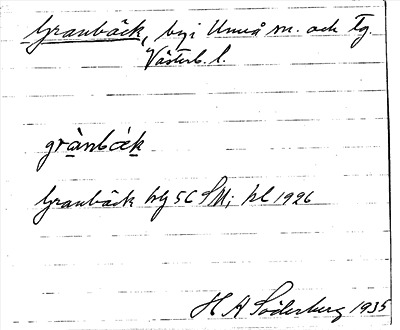 Granbäck, by i Umeå sn. och tg.
Västerb. l.
grànbä̀k
Granbäck blg 56 SM; bl 1926
H A Söderberg 1935